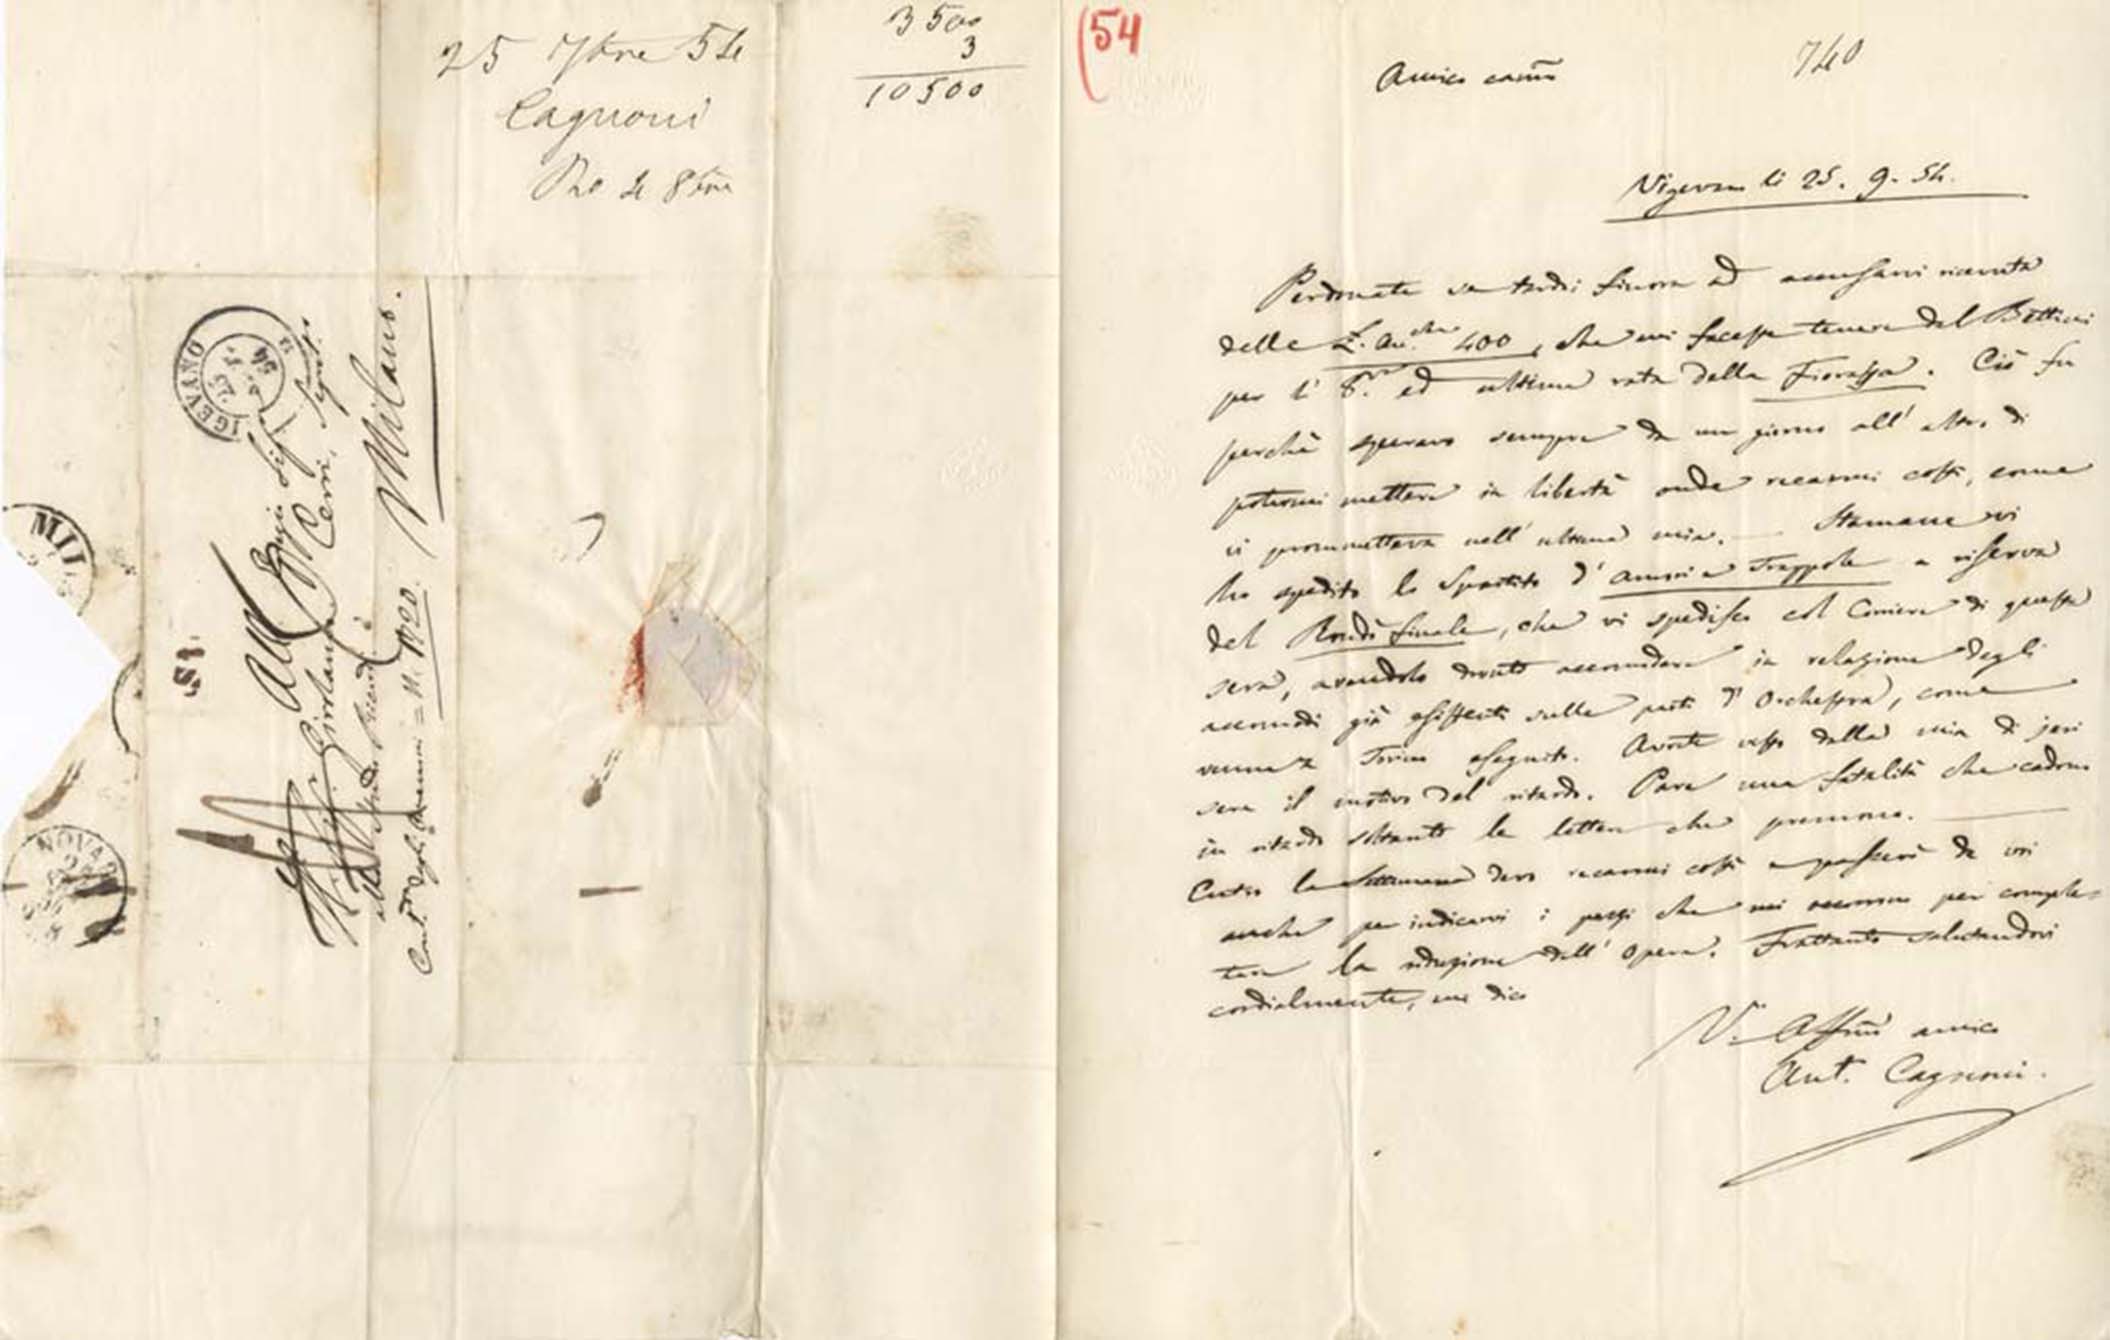 25 7bre 54
Cagnoni
Ro 4 8bre
3500
3
10500
IGEVANO
25
54
MIL
NOVA
All'
Girolamo Cerri,
Milano.
Cont.da degli Omenoni = N. 1720.
(54
740
Amico carmo
Vigevano li 25. 9. 54.
Perdonate se tardai finora ad accusarvi ricevuta
delle L. Au.che 400, che mi faceste tenere dal Bottini
per l' 8.va ed ultima rata della Fioraja. Ciò fu
perchè speravo sempre da un giorno all' altro di
potermi mettere in libertà onde recarmi costì, come
vi prommetteva nell' ultima mia. — Stamane vi
ho spedito lo Spartito d' Amori e Trappole a riserva
del Rondò finale, che vi spedisco col Corriere di questa
sera, avendolo dovuto accomodare in relazione degli
accomodi già esistenti sulle parti d' Orchestra, come
venne a Torino eseguito. Avrete visto dalla mia di jeri
sera il motivo del ritardo. Pare una fatalità che cadano
in ritardo soltanto le lettere che premono. —
Entro la Settimana devo recarmi costì e passerò da voi
anche per indicarvi i pezzi che mi occorrono per comple=
tare la riduzione dell' Opera. Frattanto salutandovi
cordialmente, mi dico
V.o Affmo amico
Ant. Cagnoni.